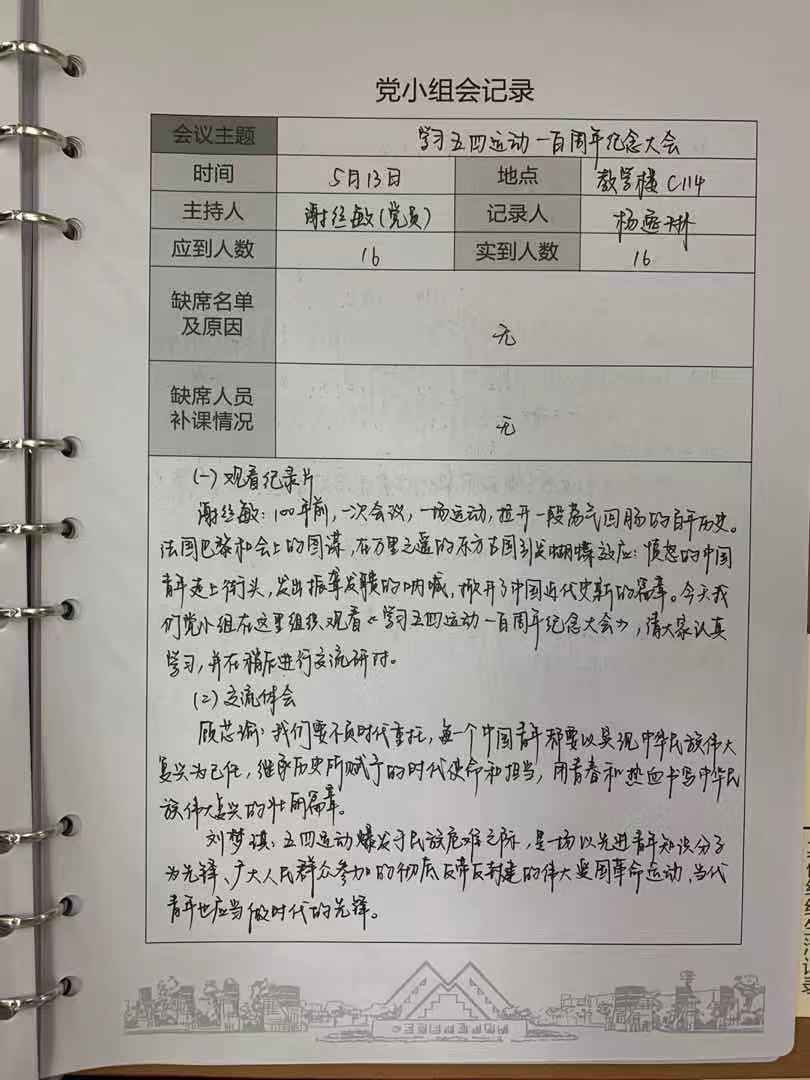 党小组会记录
会议主题 学习五四运动一百周年纪念大会
时间 5月13日 地点 教学楼C114
主持人 谢丝敏(党员) 记录人 杨琳
应到人数 16 实到人数 16
缺席名单
及原因 无
缺席人员
补课情况 无
(一)观看纪录片
谢丝敏:100年前,一次会议,一场运动,拉开一段荡气回肠的百年历史。
法国巴黎和会上的图谋,在万里之遥的东方古国引发蝴蝶效应:愤怒的中国
青年走上街头,发出振聋发聩的呐喊,掀开了中国近代史新的篇章。今天我
们党小组在这里组织观看《学习五四运动一百周年纪念大会》,请大家认真
学习,并在稍后进行交流研讨。
(2)交流体会
顾芯瑜:我们要不负时代重托,每一个中国青年都要以实现中华民族伟大
复兴为己任,继承历史所赋予的时代使命和担当,用青春和热血书写中华民
族伟大复兴的壮丽篇章。
刘梦琪:五四运动爆发于民族危难之际,是一场以先进青年知识分子
为先锋、广大人民群众参加的彻底反帝反封建的伟大爱国革命运动,当代
青年也应当做时代的先锋。